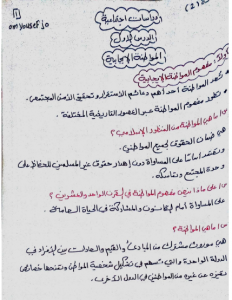 دراسات اجتماعية
(2)
الدرس الأول
om yousef jo
المواطنة الإيجابية
أولاً: مفهوم المواطنة الإيجابية
* تعد المواطنة أحد أهم دعائم الاستقرار وتحقيق الأمن المجتمعي.
* تطور مفهوم المواطنة عبر العصور التاريخية المختلفة.
س/ ما هي المواطنة من المنظور الإسلامي؟
هي ضمان الحقوق لجميع المواطنين
وتعتمد أيضاً على المساواة دون إهدار حقوق غير المسلمين للحفاظ على
وحدة المجتمع وتماسكه.
س/ على ماذا يبنى مفهوم المواطنة في القرن الواحد والعشرين؟
على المساواة أمام القانون والمشاركة في الحياة السياسية.
س/ ما هي المواطنة؟
هي موروث مشترك من المبادئ والقيم والعادات بين الأفراد في
الدولة الواحدة والتي تسهم في تشكيل شخصية المواطن وتمنحها خصائص
تميزه عن غيره من المواطنين في الدول الأخرى.